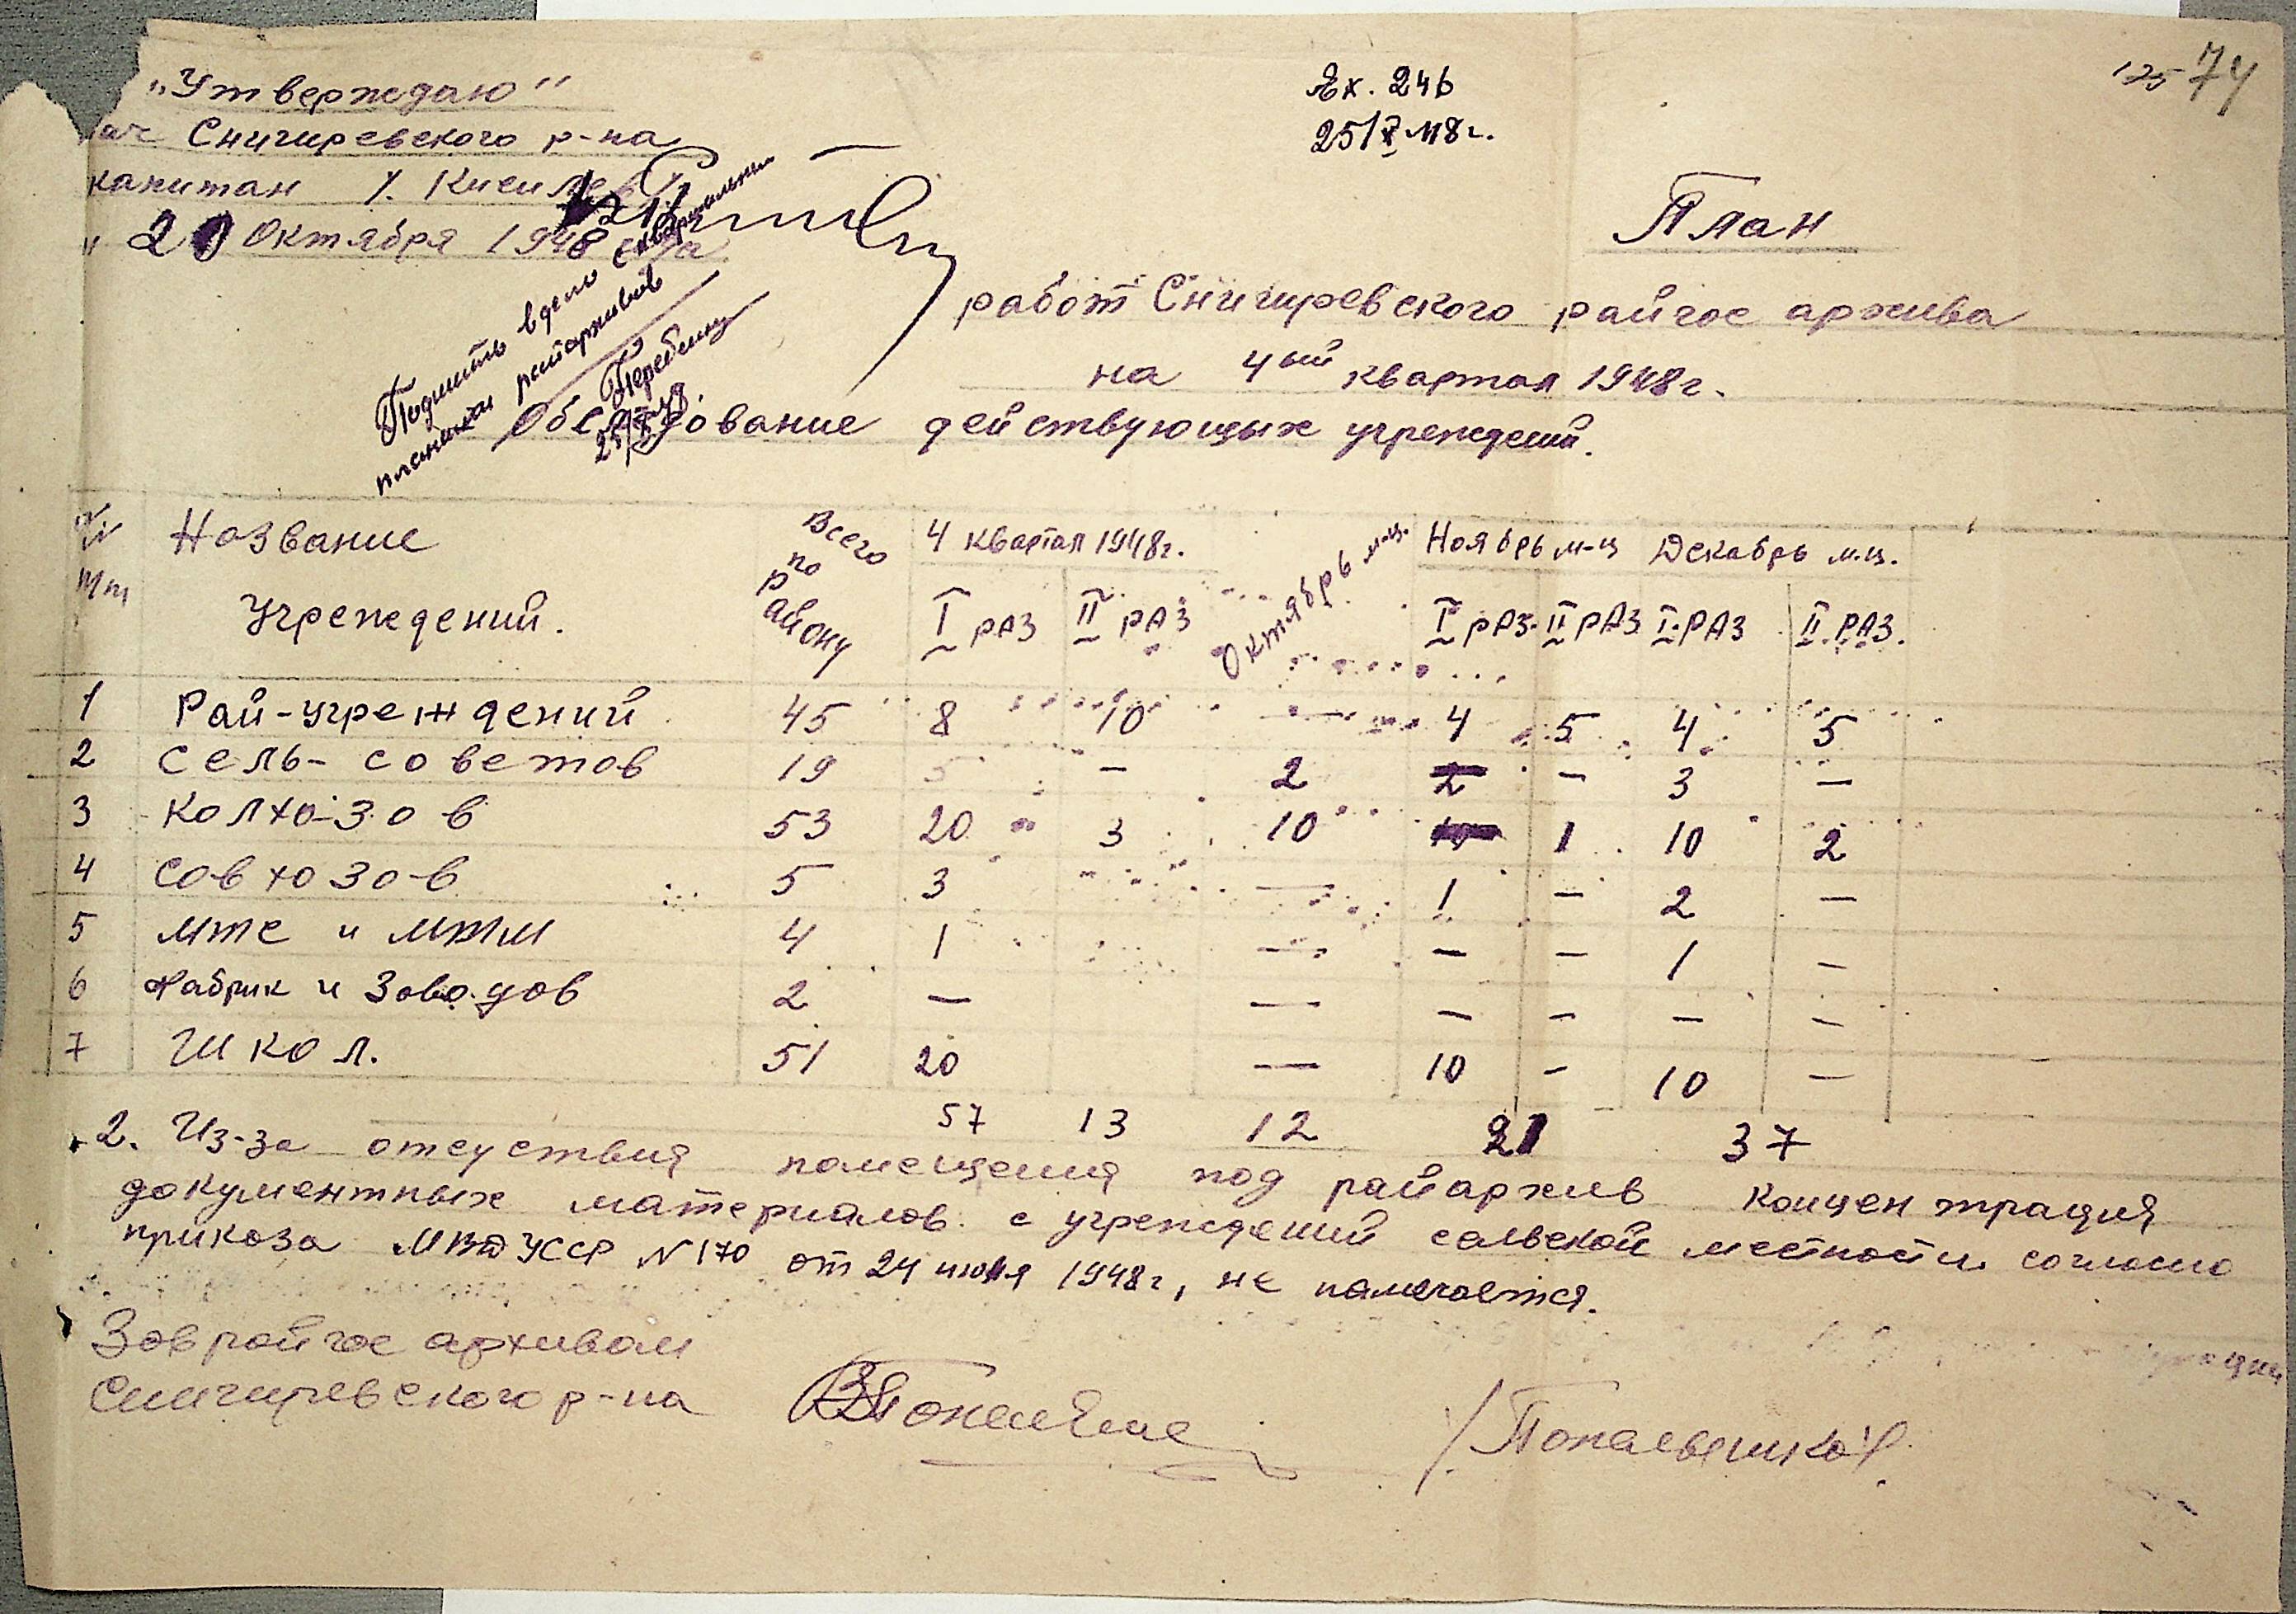 125 74
„Утверждаю"
нач Снигиревского р-на
капитан /. Кисилев /
" 20 Октября 1948 года
Вх. 246
25/X-48г.
Подшить в дело с квартальными
планами райархивов
Перебий
25/X-48.
План
работ Снигиревского райгос архива
на 4ый квартал 1948г.
Обследование действующых учреждений.
№№ пп Название Учреждений. Всего по району 4 квартал 1948г. Октябрь м-ц. Ноябрь м-ц Декабрь м.ц.
I раз II раз I раз. II раз I. раз II. раз.
1 Рай-учреждений 45 8 10 — 4 5 4 5
2 сель-советов 19 5 — 2 2 — 3 —
3 колхо-зов 53 20 3 10 1 10 2
4 совхозов 5 3 — 1 — 2 —
5 мтс и мтм 4 1 — — — 1 —
6 Фабрик и Заводов 2 — — — — — —
7 Школ. 51 20 — 10 — 10 —
57 13 12 21 37
2. Из-за отсуствия помещения под райархив концентрация
документных материалов с учреждений сельской местности согласно
приказа МВД УССР N 170 от 24 июня 1948г, не намечается.
Зав райгос архивом
Снигиревского р-на /Попельнико/